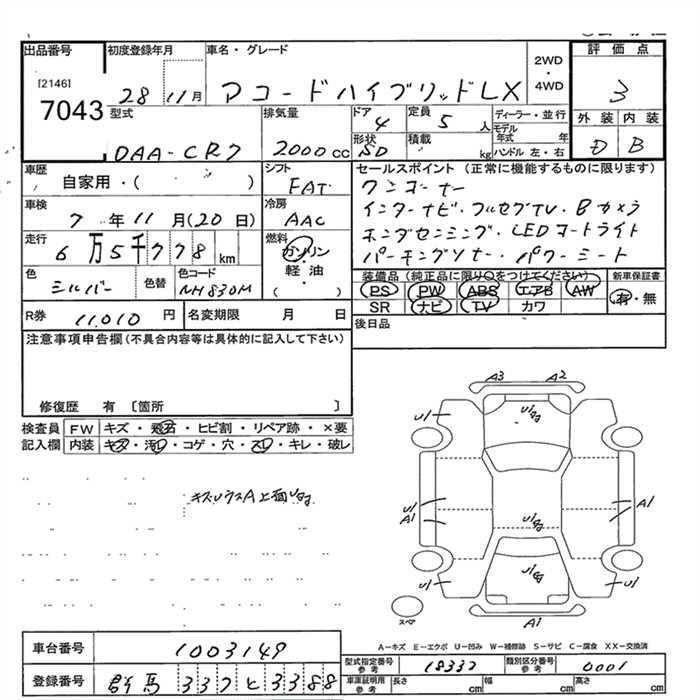 出品番号 初度登録年月 車名・グレード 2WD・4WD 評価点
[2146]
7043 28 11月 アコードハイブリッドLX 3
型式 排気量 ドア 4 定員 5人 ディーラー・並行 外装 内装
DAA-CR7 2000cc 形状 SD 積載 kg モデル年式 年 ハンドル 左・右 D B
車歴 自家用・( ) シフト FAT セールスポイント(正常に機能するものに限ります)
ワンオーナー
車検 7年11月(20日) 冷房 AAC インターナビ・フルセグTV・Bカメラ
ホンダセンシング・LEDオートライト
走行 6万5千778km 燃料 ガソリン・軽油・( ) パーキングソナー・パワーシート
色 シルバー 色替 色コード NH830M 装備品(純正品に限り○をつけてください) 新車保証書
PS PW ABS エアB AW 有・無
SR ナビ TV カワ
R券 11,010円 名変期限 月 日 後日品
注意事項申告欄(不具合内容等は具体的に記入して下さい)
修復歴 有〔箇所 〕
検査員記入欄 FW キズ・飛石・ヒビ割・リペア跡・×要
内装 キズ・汚れ・コゲ・穴・スレ・キレ・破レ
A3 A2
U1 U1
A1 A1
U1 U1
A1
スペア
A-キズ E-エクボ U-凹み W-補修跡 S-サビ C-腐食 XX-交換済
車台番号 1003149
型式指定番号 参考 18332 類別区分番号 参考 0001
登録番号 群馬 337 と 3388 車庫証明用 参考 長さ cm 幅 cm 高さ cm